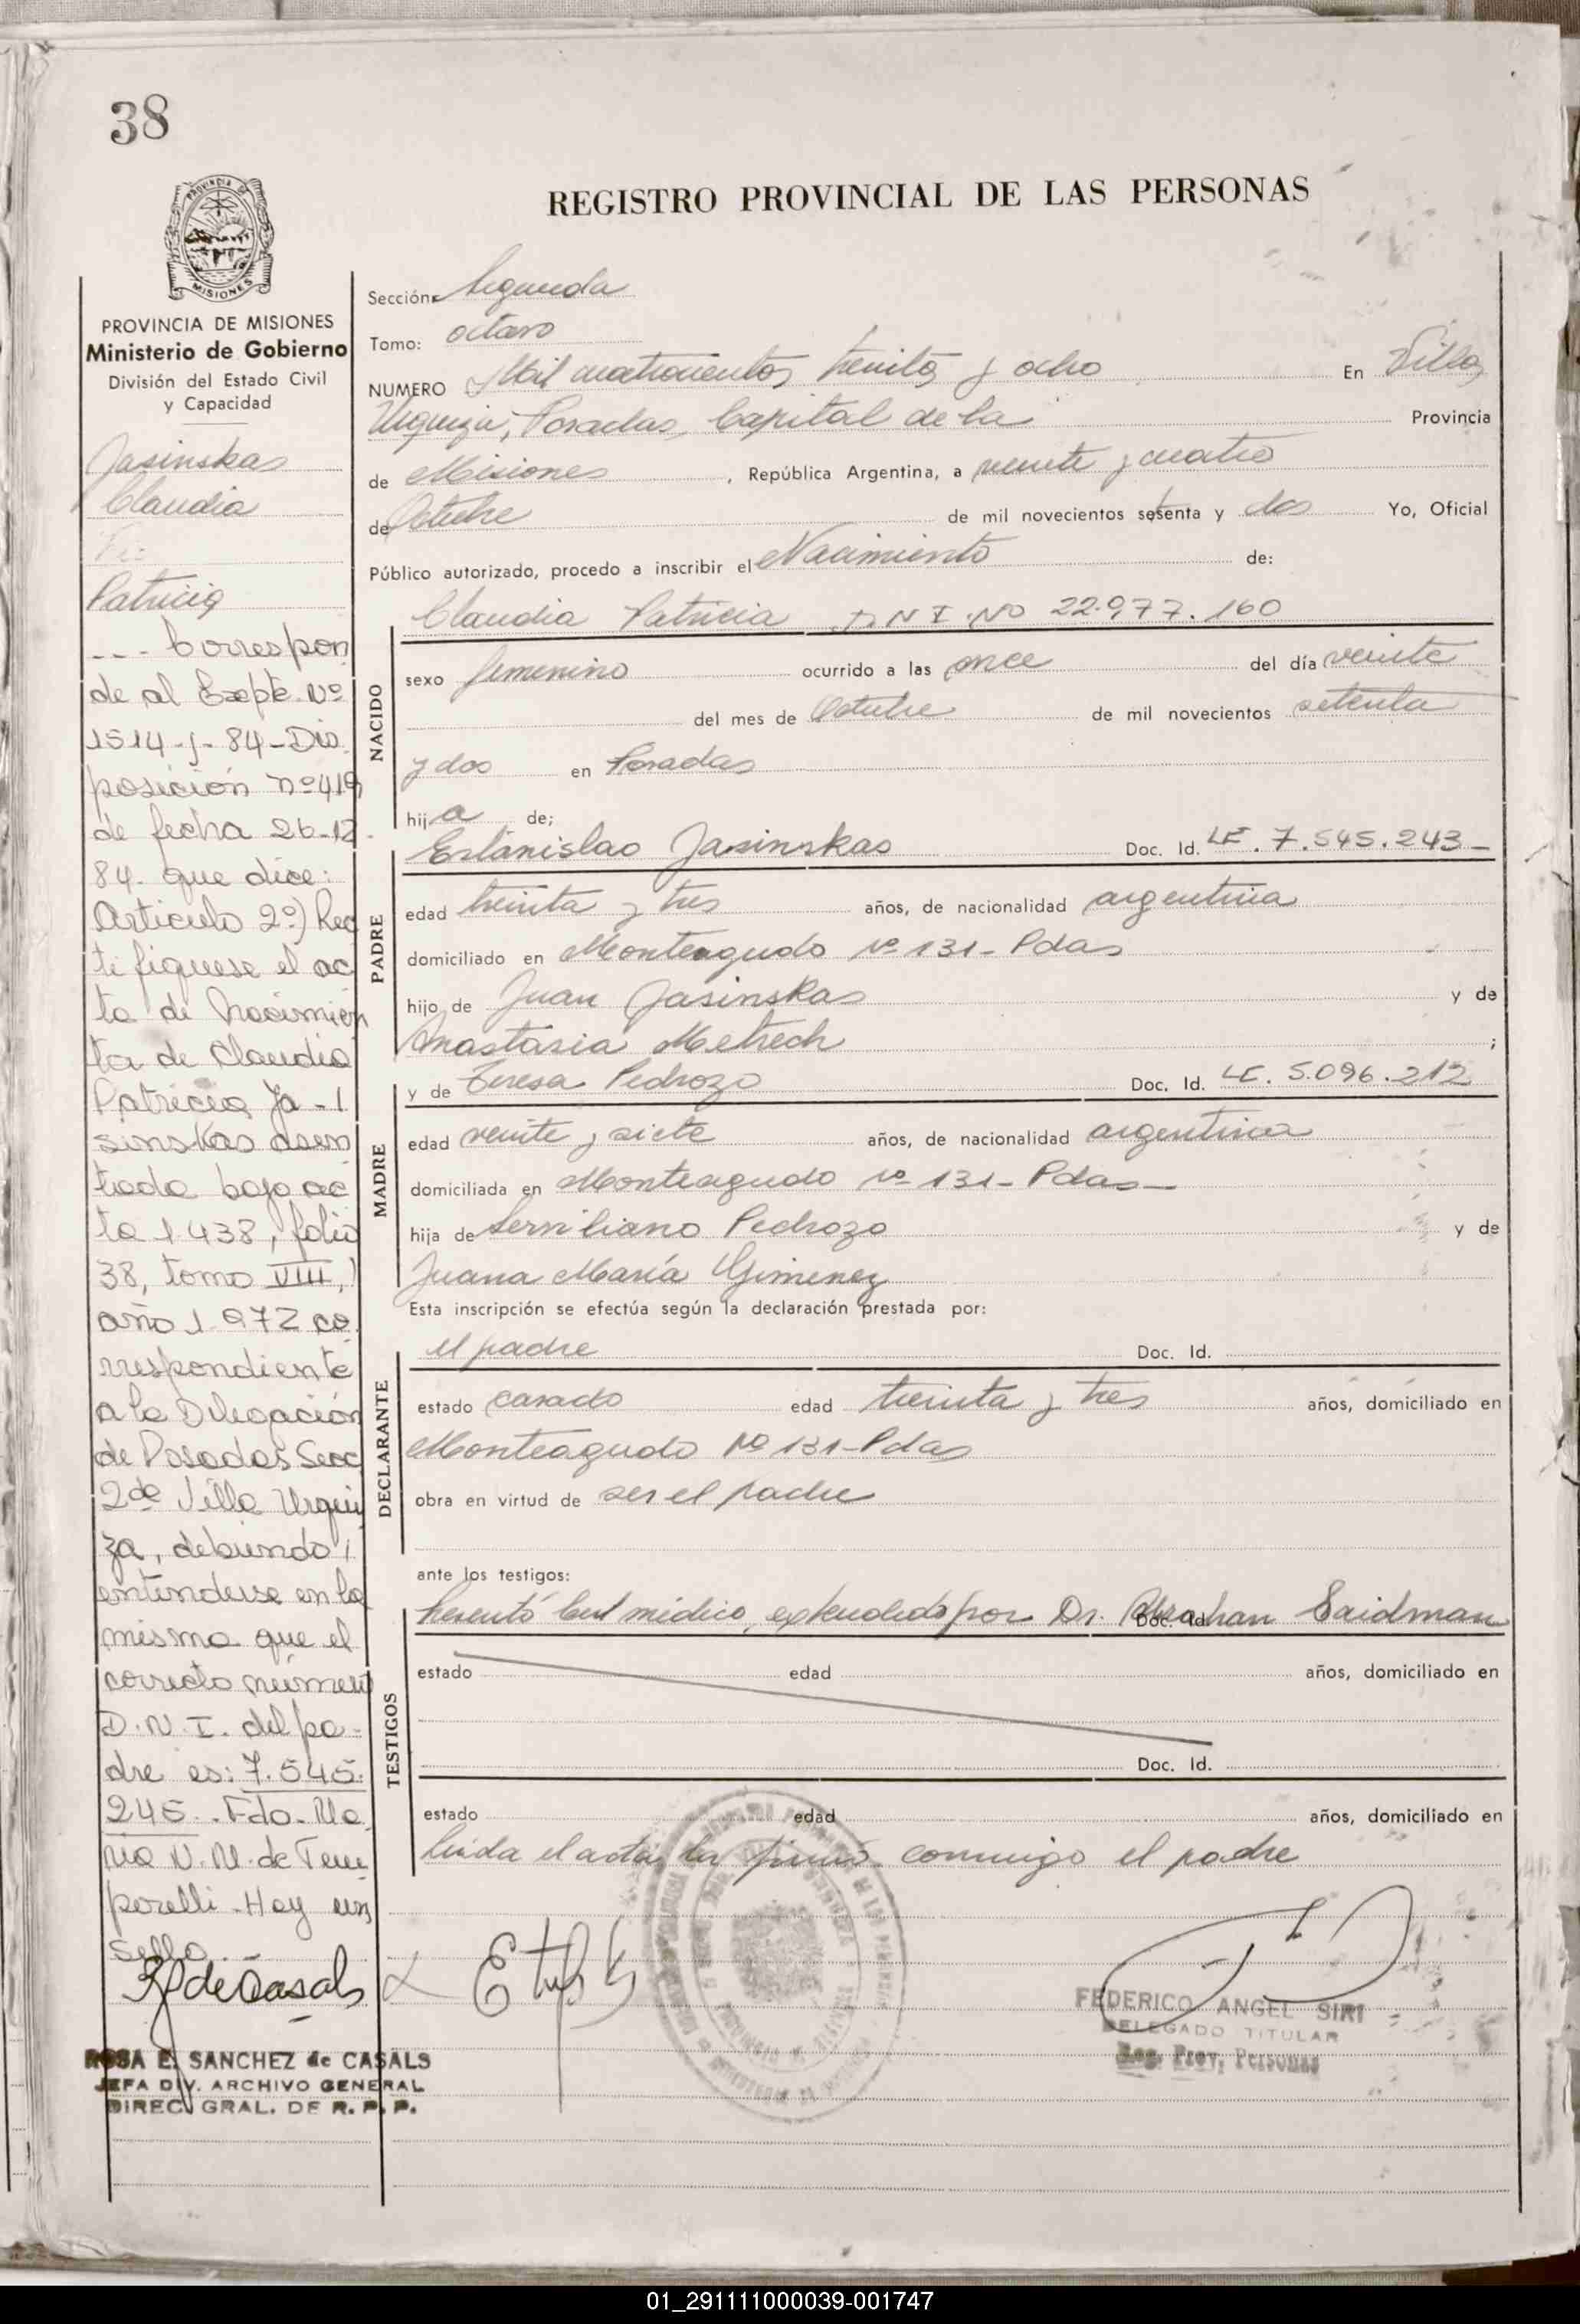 38
PROVINCIA DE
MISIONES
REGISTRO PROVINCIAL DE LAS PERSONAS
PROVINCIA DE MISIONES
Ministerio de Gobierno
División del Estado Civil
y Capacidad
Jasinskas
Claudia
Patricia
--- Correspon
de al Expte. Nº
1514-J-84-Dis
posición nº 419
de fecha 26-12-
84. que dice:
Articulo 2º) Rec
tifiquese el ac
ta de Nacimien
to de Claudia
Patricia Ja-
sinskas asen
tada bajo ac
ta 1438, folio
38, tomo VIII,
año 1972 co
rrespondiente
a la Delegación
de Posadas Secc
2da Villa Urqui
za, debiendo
entenderse en la
misma que el
correcto número
D.N.I. del pa-
dre es: 7.545.
245. Fdo. Ma
ria N. M. de Tem
porelli. Hay un
sello.
R S de Casals
ROSA E. SANCHEZ de CASALS
JEFA DIV. ARCHIVO GENERAL
DIREC. GRAL. DE R. P. P.
Sección: Segunda
Tomo: octavo
NUMERO Mil cuatrocientos treinta y ocho En Villa
Urquiza, Posadas, Capital de la Provincia
de Misiones, República Argentina, a veinte y cuatro
de Octubre de mil novecientos setenta y dos Yo, Oficial
Público autorizado, procedo a inscribir el Nacimiento de:
Claudia Patricia D N I Nº 22.977.160
NACIDO
sexo femenino ocurrido a las once del día veinte
del mes de Octubre de mil novecientos setenta
y dos en Posadas
hija de;
Estanislao Jasinskas Doc. Id. LE. 7.545.243-
PADRE
edad treinta y tres años, de nacionalidad argentina
domiciliado en Monteagudo Nº 131- Pdas
hijo de Juan Jasinskas y de
Anastasia Metrech;
y de Teresa Pedrozo Doc. Id. LC. 5.096.212
MADRE
edad veinte y siete años, de nacionalidad argentina
domiciliada en Monteagudo Nº 131- Pdas-
hija de Serviliano Pedrozo y de
Juana María Gimenez
Esta inscripción se efectúa según la declaración prestada por:
el padre Doc. Id.
DECLARANTE
estado casado edad treinta y tres años, domiciliado en
Monteagudo Nº 131-Pdas
obra en virtud de ser el padre
ante los testigos:
Presentó Cert médico, extendido por Dr. Abrahan Saidman Doc. Id.
TESTIGOS
estado edad años, domiciliado en
Doc. Id.
estado edad años, domiciliado en
leida el acta, la firmó conmigo el padre
FEDERICO ANGEL SIRI
DELEGADO TITULAR
Reg. Prov. Personas
01_291111000039-001747